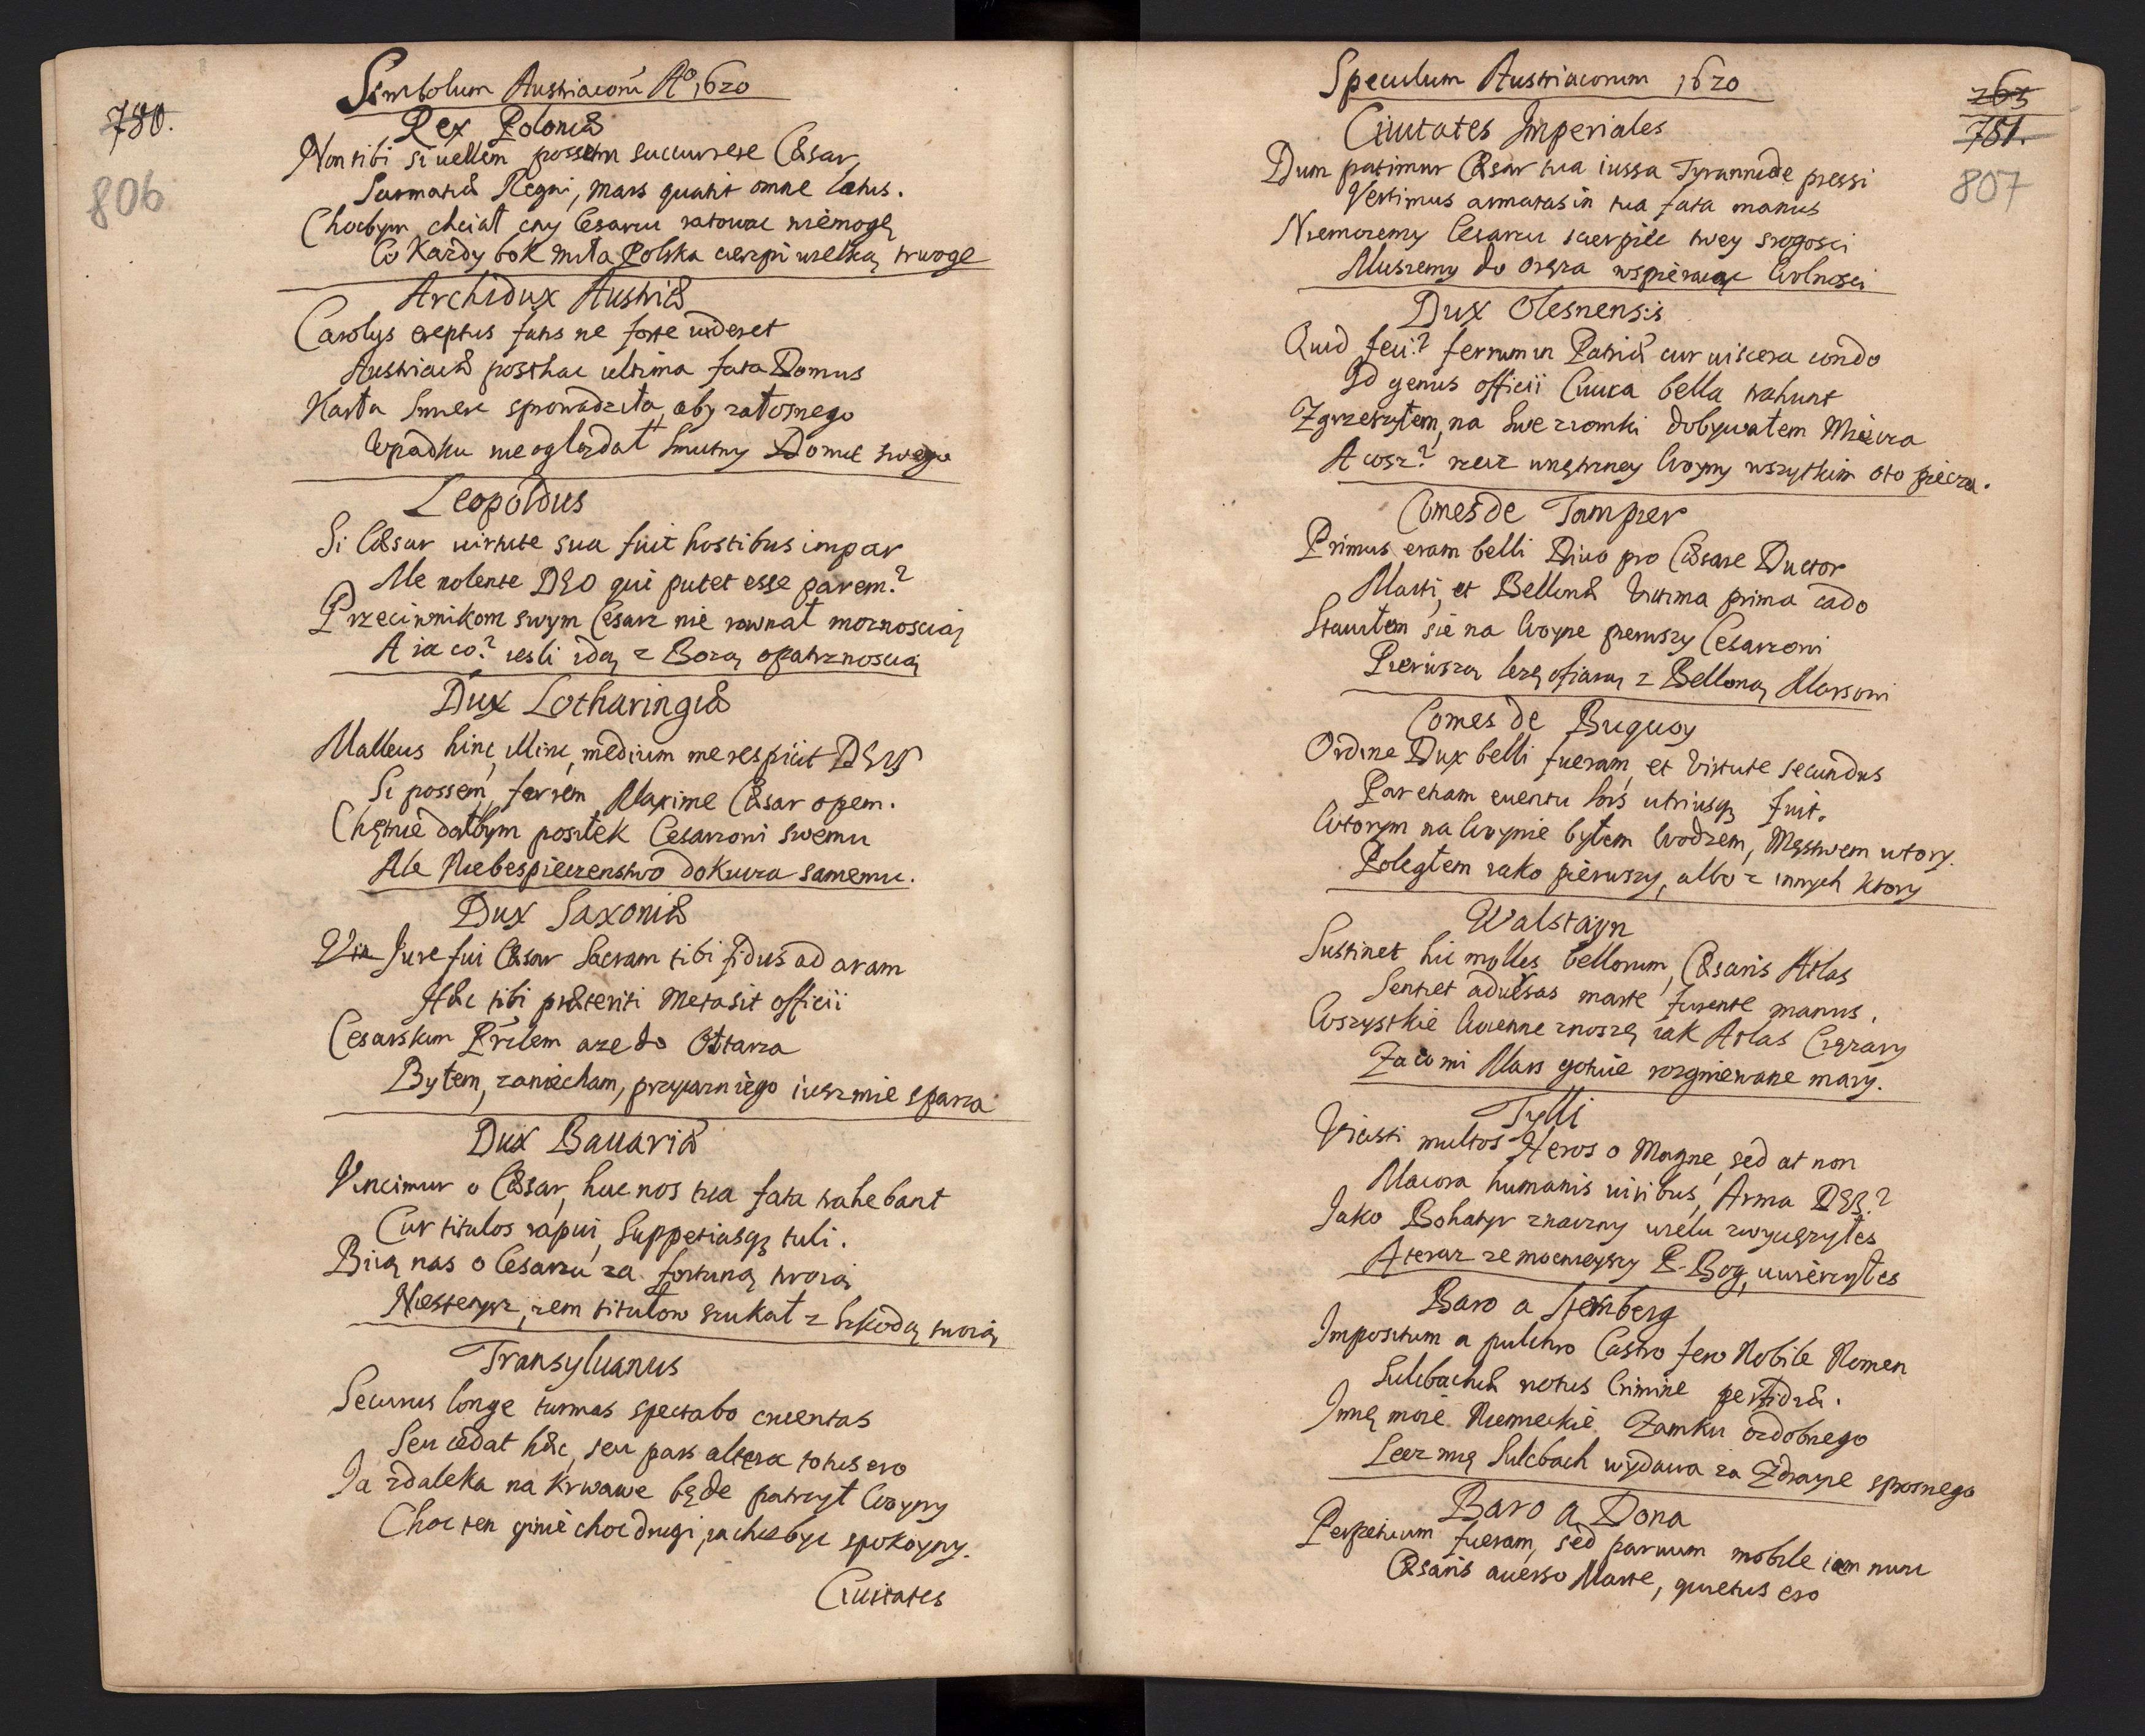 Simbolum Austriacorū Aº 1620
780.
806
Rex Poloniæ
Non tibi si uellem possem succurrere Cæsar,
Sarmatiæ Regni, Mars quatit omne latus.
Chocbym chciał cny Cesarzu ratowac niemogę
Co Kazdy bok miła Polska cierpi wielką trwogę
Archidux Austriæ
Carolus ereptus fatis ne forte uideret
Austriacæ posthac ultima fata Domus
Karła Smierc sprowadziła, aby załosnego
Upadku nie oglądał smutny Domu swego
Leopoldus
Si Cæsar uirtute sua fuit hostibus impar
Me nolente DEO qui putet esse parem?
Przeciwnikom swym Cesarz nie rownał moznoscią
A ia co? iesli idą z Bozą opatrznoscią
Dux Lotharingiæ
Malleus hinc, illinc, medium me respicit DEUS
Si possem, ferrem, Maxime Cæsar opem.
Chętnie dałbym posiłek Cesarzowi swemu
Ale Niebespieczenstwo dokucza samemu.
Dux Saxoniæ
Jure fui Cæsar Sacram tibi fidus ad aram
Hæc tibi præteriti Meta sit officii
Cesarskim Przilem aze do Ołtarza
Byłem, zaniecham, przyiazn iego iusz mie sparza
Dux Bauariæ
Vincimur o Cæsar, huc nos tua fata trahebant
Cur titulos rapui, Suppetiasq3 tuli.
Biią nas o Cesarzu za fortuną twoią
Niestetysz, zem titułow szukał z Szkodą swoią
Transyluanus
Securus longe turmas spectabo cruentas
Seu cedat hæc, seu pars altera totus ero
Ja zdaleka na krwawe będe patrzył Woyny
Choc ten ginie choc drugi, ia chcę byc spokoyny.
Ciuitates
Speculum Austriacorum 1620
263
781.
807
Ciuitates Imperiales
Dum patimur Cæsar tua iussa Tyrannide pressi
Vertimus armatas in tua fata manus
Niemozemy Cesarzu scierpiec twey srogosci
Muszemy do oręza wspieraiąc Wolnosci
Dux Olesnensis
Quid feci? ferrum in Patriæ cur uiscera condo
Id genus officii Ciuica bella trahunt
Zgrzeszyłem, na swe ziomki dobywałem Miecza
A cosz? rzecz wnętrzney Woyny wszytkim oto piecza.
Comes de Tampier
Primus eram belli Diuo pro Cæsare Ductor
Marti, et Bellonæ Victima prima cado
Stawiłem sie na Woyne pierwszy Cesarzowi
Pierwszą lezę ofiarą z Belloną Marsowi
Comes de Buquoy
Ordine Dux belli fueram, et Virtute secundus
Par etiam euentu sors utriusq3 fuit.
Wtorym na Woynie byłem Wodzem, Męstwem wtory.
Poległem iako pierwszy, albo z innych ktory
Walstayn
Sustinet hic molles bellorum, Cæsaris Atlas
Sentiet aduersas marte furente manus.
Wszystkie Woienne znoszę iak Atlas Cięzary
Za co mi Mars gotuie rozgniewane mary.
Tylli
Vicisti multos Heros o Magne, sed at non
Maiora humanis uiribus, Arma DEI?
Jako Bohatyr znaczny wielu zwyciężyłes
A teraz ze mocnieyszy P. Bog, uwierzyłes
Baro a Stemberg
Impositum a pulchro Castro fero Nobile Nomen
Sulcbachiæ notus Crimine perfidiæ.
Jmię moie Niemieckie Zamku ozdobnego
Lecz mię Sulcbach wydawa za Zdrayce sprosnego
Baro a Dona
Perpetuum fueram, sed paruum mobile iam nunc
Cæsaris auerso Marte, quietus ero